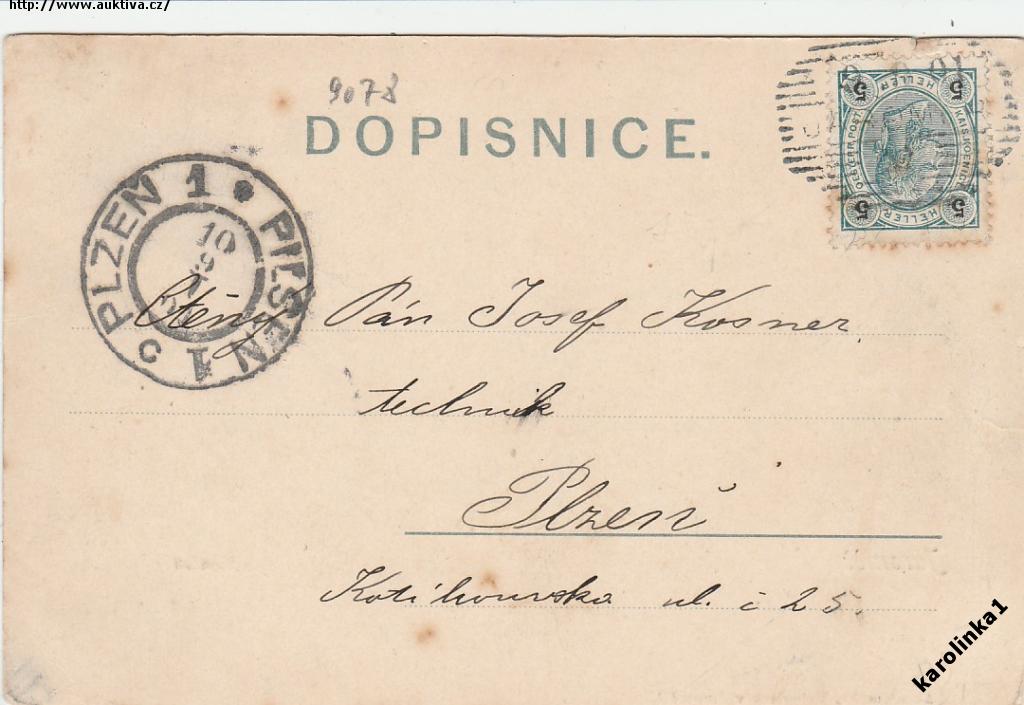 http://www.auktiva.cz/
9078
DOPISNICE.
5 HELLER 5
KAIS.KOENIGL. OESTERR.POST
5 HELLER 5
PLZEŇ 1 PILSEN 1 C
10
9
Ctěný Pán Josef Kosner
technik
Plzeň
Kotíkovská ul. č 25.
karolinka1